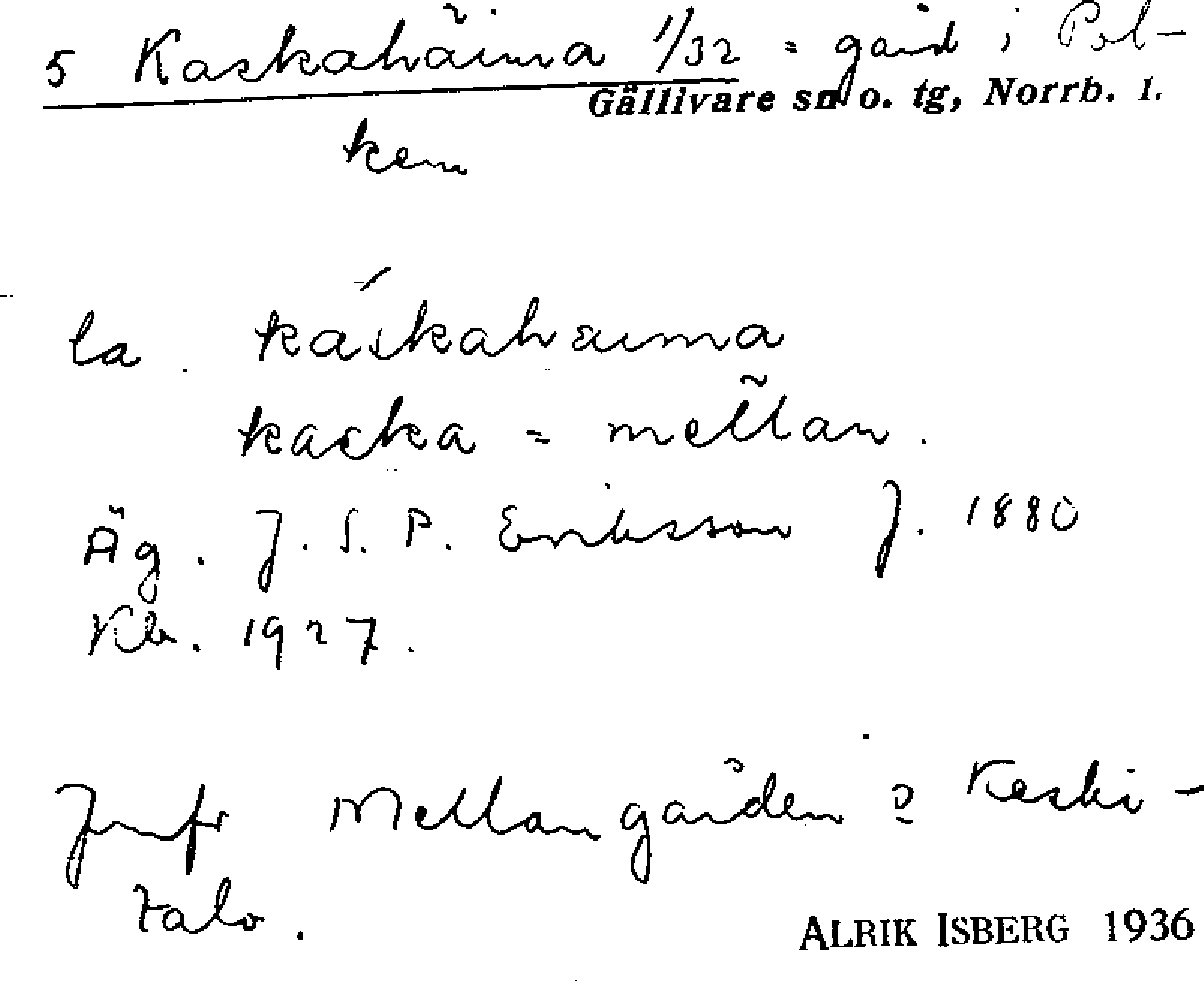 5 Kaskahäima 1/32 = gård i Pol-
Gällivare sn o. tg, Norrb. l.
ken
la. káskahæima
kaska = mellan.
Äg. J. S. P. Eriksson f. 1880
Kb. 1927.
Jmfr Mellangården = Keski-
talo.
ALRIK ISBERG 1936